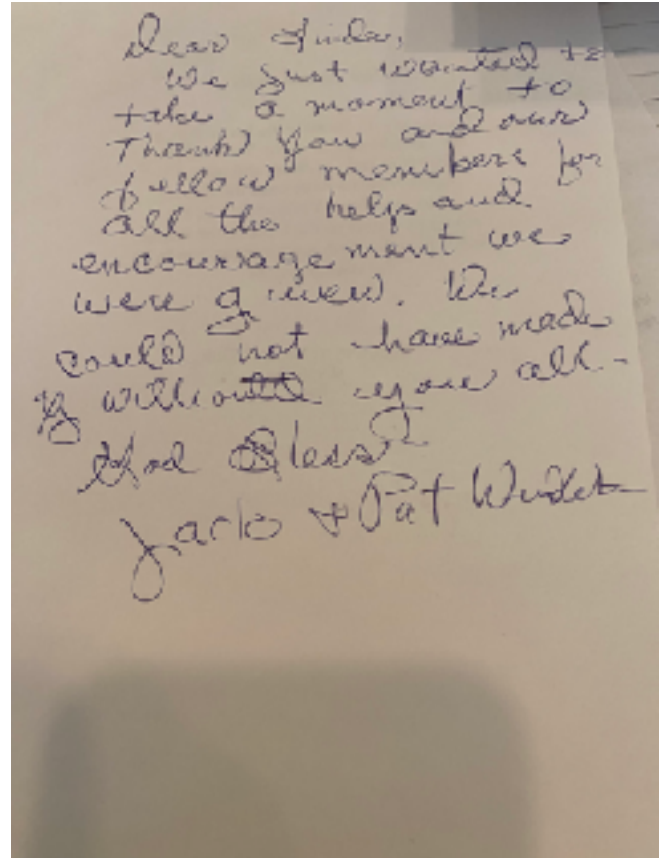 Dear Linda,
We just wanted to
take a moment to
Thank you and our
fellow members for
all the help and
encouragement we
were given. We
could not have made
without you all.
God Bless
+ Pat